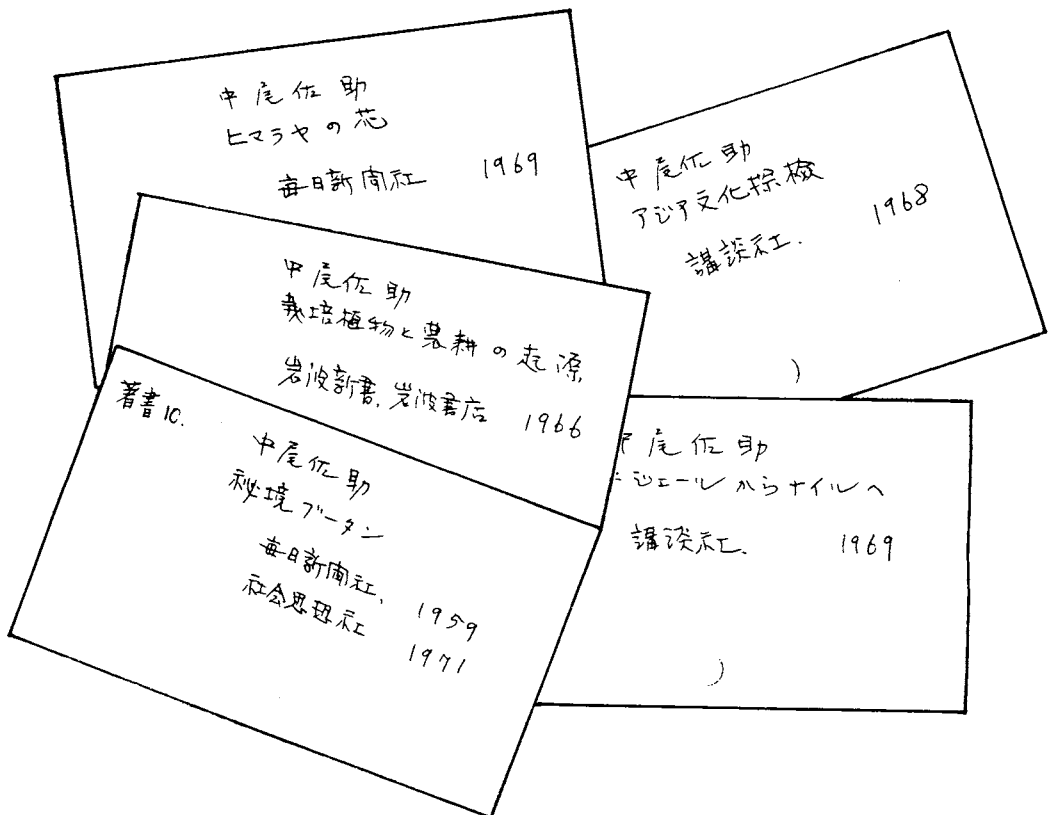 中尾佐助
ヒマラヤの花
毎日新聞社 1969
中尾佐助
アジア文化探検
講談社. 1968
中尾佐助
栽培植物と農耕の起源
岩波新書, 岩波書店 1966
著書10.
中尾佐助
秘境ブータン
毎日新聞社, 1959
社会思想社 1971
尾佐助
ジェールからナイルへ
講談社. 1969